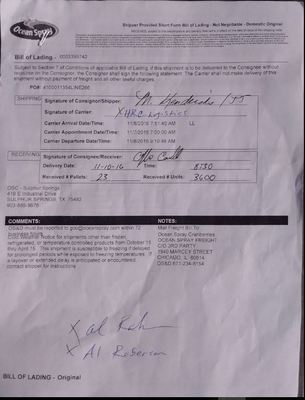 Ocean Spray
Shipper Provided Short Form Bill of Lading - Not Negotiable - Domestic Original
Bill of Lading - 0003395742
Subject to Section 7 of Conditions of applicable Bill of Lading, if this shipment is to be delivered to the Consignee without
recourse on the Consignor, the Consignor shall sign the following statement. The Carrier shall not make delivery of this
shipment without payment of freight and all other lawful charges.
PO#:
SHIPPING
Signature of Consignor/Shipper:
Signature of Carrier: X HRC Logistics
Carrier Arrival Date/Time: LL
Carrier Appointment Date/Time: 7:00:00 AM
Carrier Departure Date/Time:
RECEIVING
Signature of Consignee/Receiver:
Delivery Date: 11-10-16 Time: 8:30
Received # Pallets: 23 Received # Units: 3600
OSC - Sulphur Springs
419 E Industrial Drive
SULPHUR SPRINGS, TX 75482
903-885-8676
COMMENTS:
OS&D must be reported to within 72
Notice for shipments other than frozen,
refrigerated, or temperature controlled products from October 15
thru April 15. This shipment is susceptible to freezing if delayed
for prolonged periods while exposed to freezing temperatures. If
a layover or extended delay is anticipated or encountered,
contact shipper for instructions
NOTES:
Mail Freight Bill To:
Ocean Spray Cranberries
OCEAN SPRAY FREIGHT
C/O 3RD PARTY
2840 MARCEY STREET
CHICAGO, IL 60614
X Al
X Al Roberson
BILL OF LADING - Original